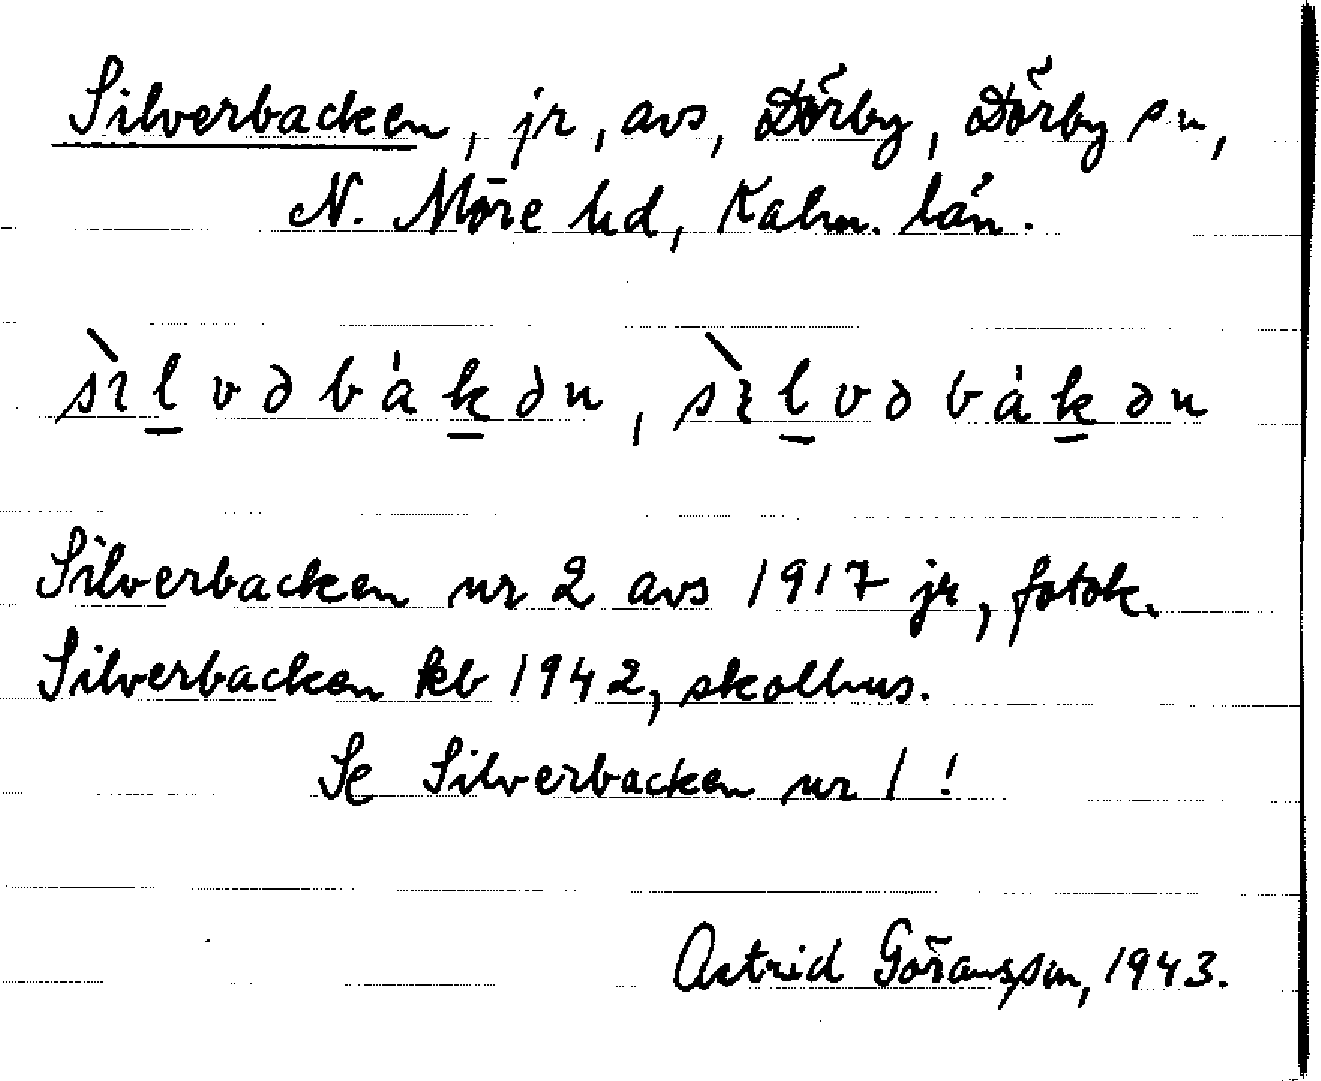 Silverbacken, jr, avs, Dörby, Dörby sn,
N. Möre hd, Kalm. län.
sìlvəbákən, sìlvəbákən
Silverbacken nr 2 avs 1917 jr, fotok.
Silverbacken kb 1942, skolhus.
Se Silverbacken nr 1!
Astrid Göransson, 1943.